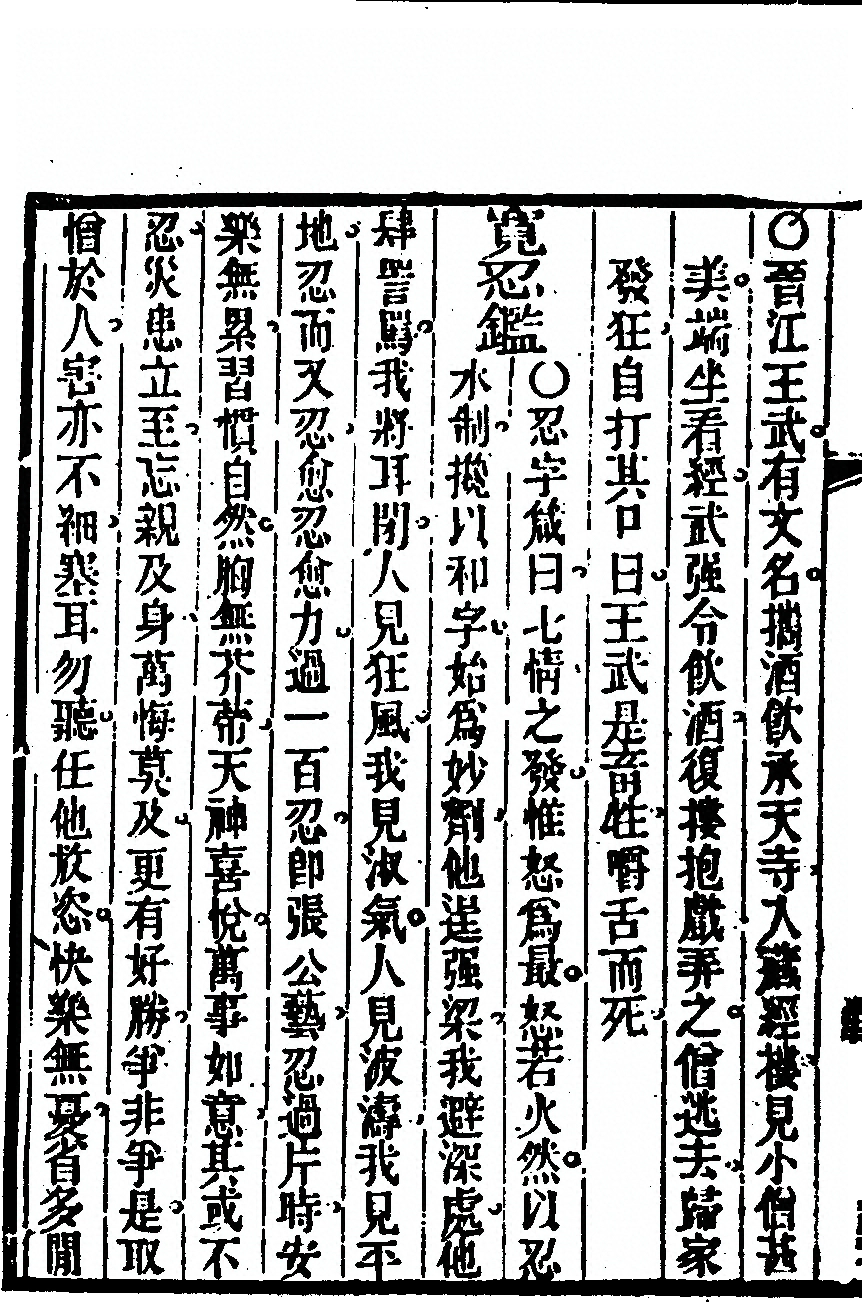 〇晉江王武有文名擕酒飮承天寺入藏經樓見小僧甚
美端坐看經武强令飮酒復摟抱戲弄之僧逃去歸家
發狂自打其口曰王武是畜牲嚼舌而死
寬忍鑑
〇忍字箴曰七情之發惟怒爲最怒若火然以忍
水制撓以和字始爲妙劑他逞强梁我避深處他
肆詈罵我將耳閉人見狂風我見淑氣人見波濤我見平
地忍而又忍愈忍愈力過一百忍卽張公藝忍過片時安
樂無累習慣自然胸無芥蒂天神喜悅萬事如意其或不
忍災患立至忘親及身萬悔莫及更有好勝爭非爭是取
憎於人害亦不細塞耳勿聽任他放恣快樂無憂省多閒